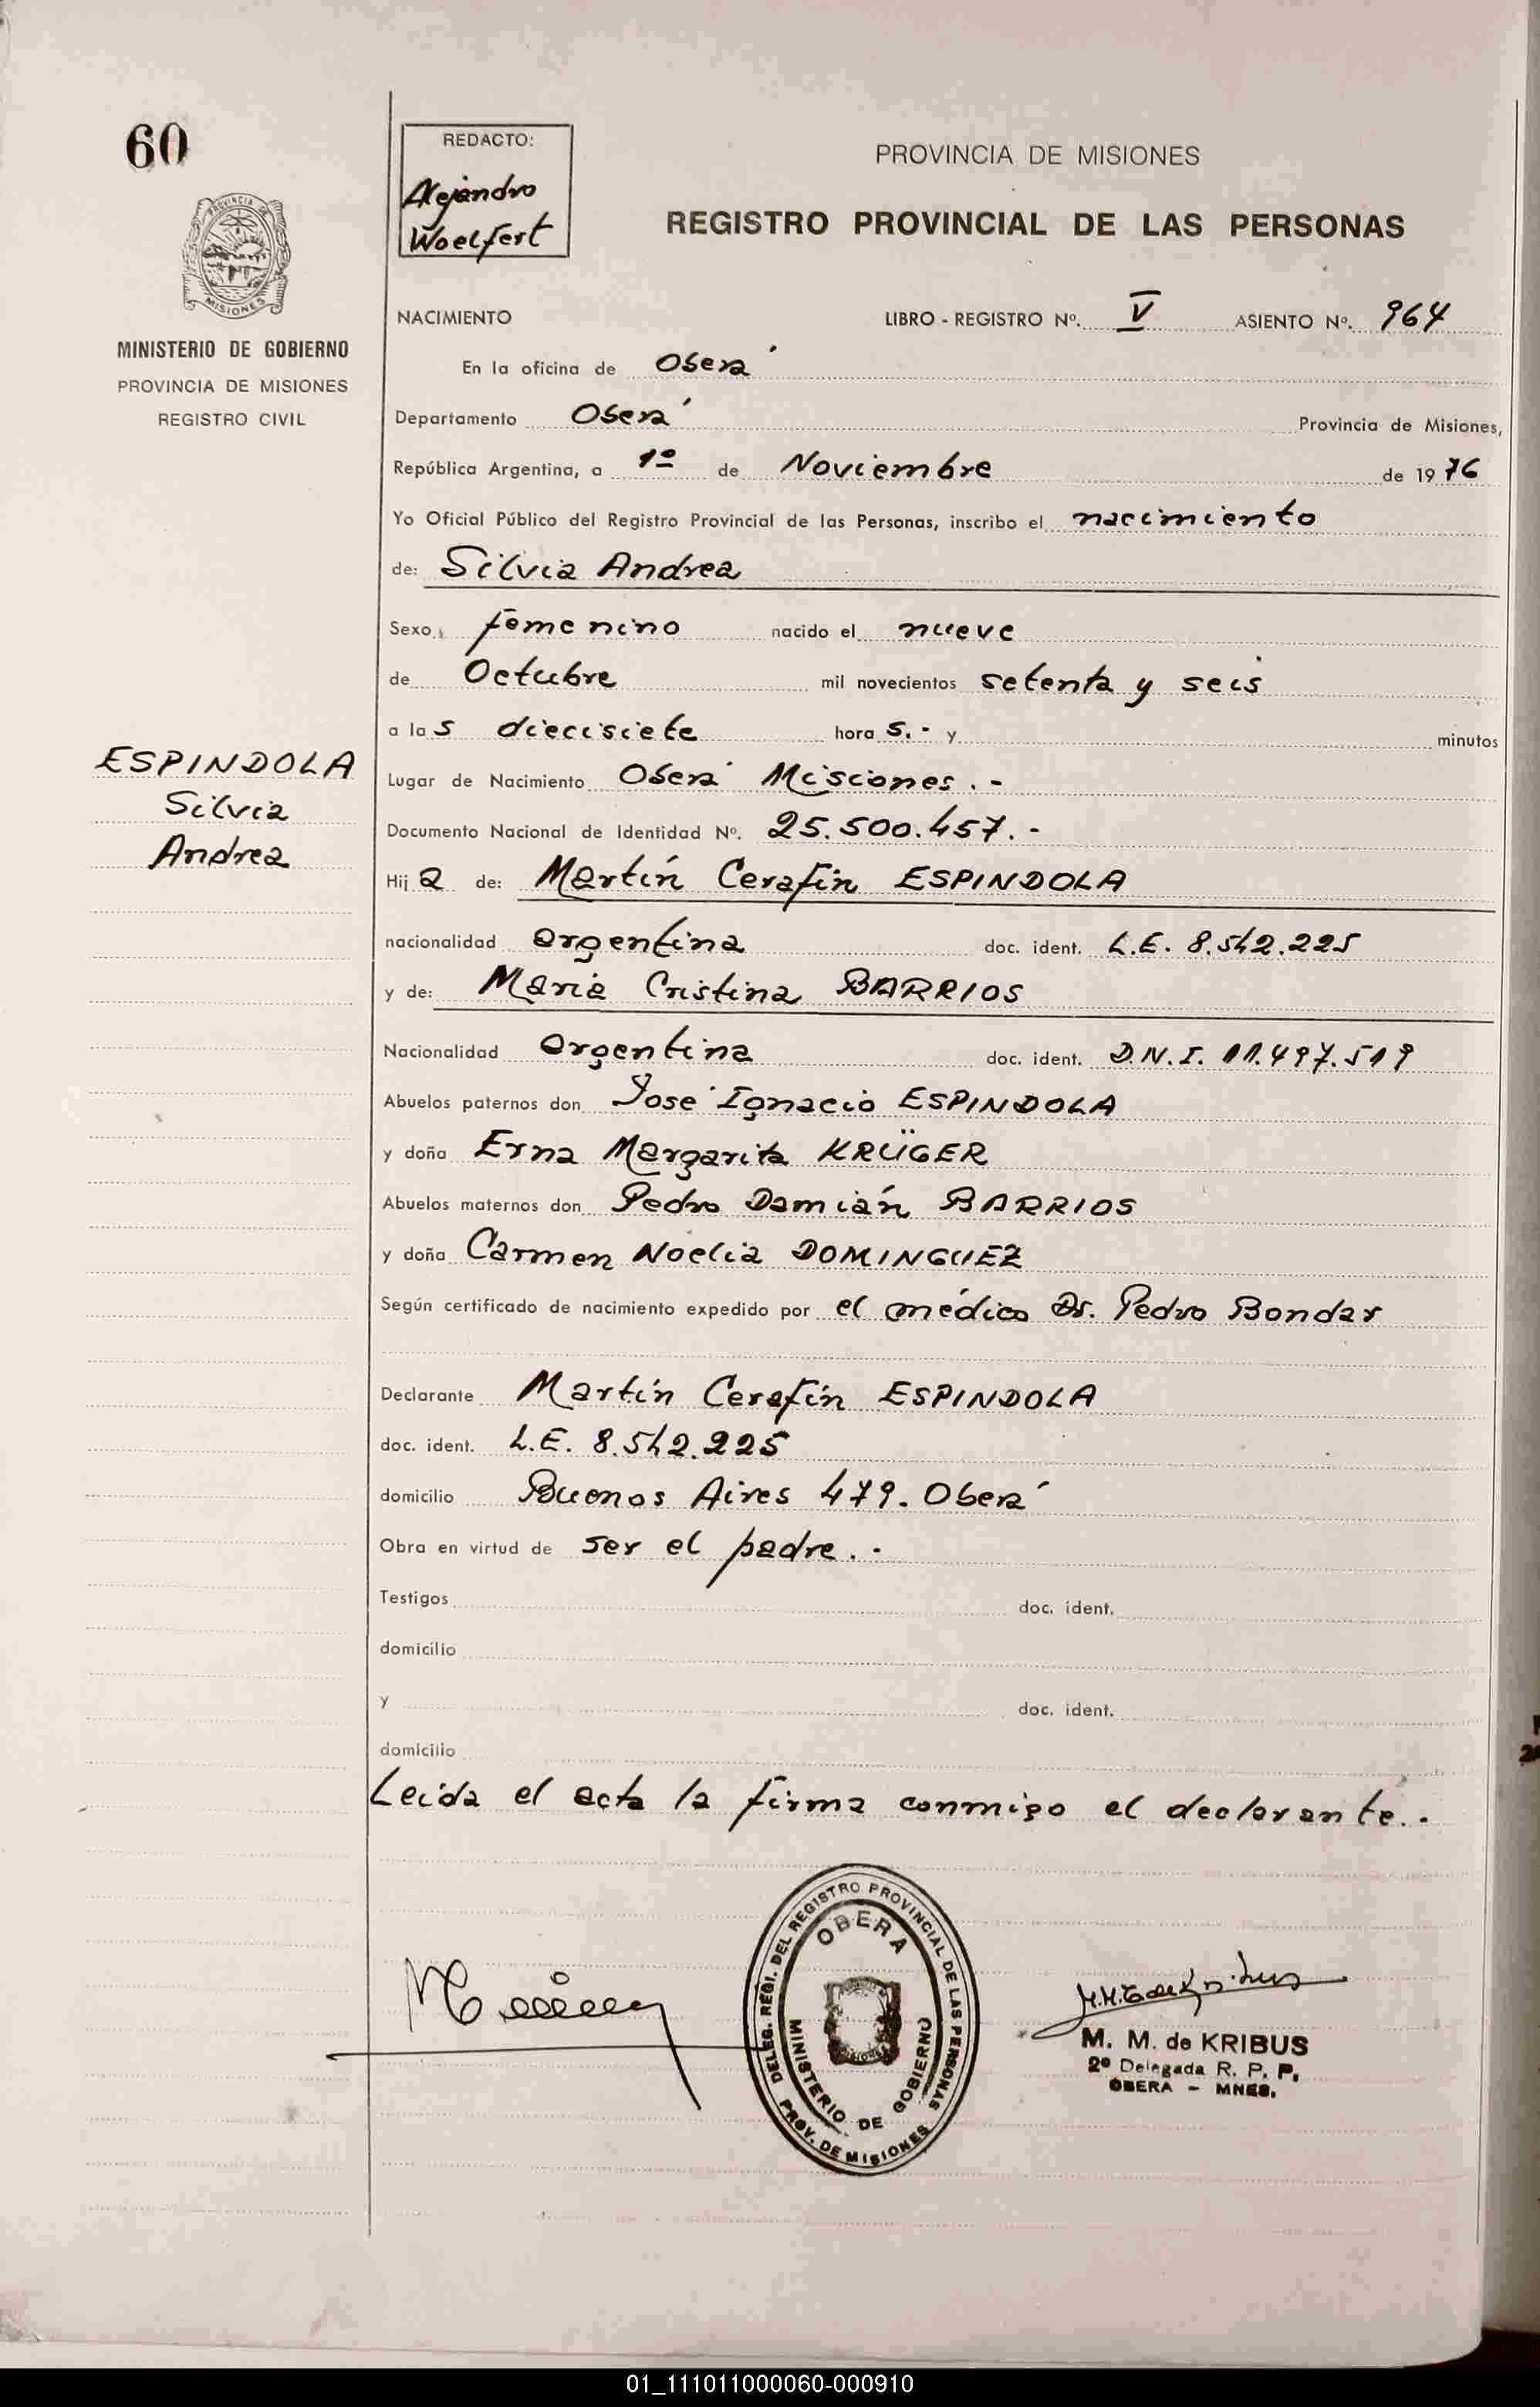 60
REDACTO:
Alejandro
Woelfert
PROVINCIA DE MISIONES
REGISTRO PROVINCIAL DE LAS PERSONAS
PROVINCIA DE
MISIONES
MINISTERIO DE GOBIERNO
PROVINCIA DE MISIONES
REGISTRO CIVIL
NACIMIENTO LIBRO - REGISTRO Nº. V ASIENTO Nº. 964
En la oficina de Oberá
Departamento Oberá Provincia de Misiones,
República Argentina, a 1º de Noviembre de 1976
Yo Oficial Público del Registro Provincial de las Personas, inscribo el nacimiento
de: Silvia Andrea
Sexo, femenino nacido el nueve
de Octubre mil novecientos setenta y seis
a las diecisiete horas.- y minutos
ESPINDOLA
Silvia
Andrea
Lugar de Nacimiento Oberá Misiones.-
Documento Nacional de Identidad Nº. 25.500.457.-
Hija de: Martín Cerafín ESPINDOLA
nacionalidad argentina doc. ident. L.E. 8.542.225
y de: Maria Cristina BARRIOS
Nacionalidad argentina doc. ident. D.N.I. 11.497.519
Abuelos paternos don José Ignacio ESPINDOLA
y doña Erna Margarita KRÜGER
Abuelos maternos don Pedro Damián BARRIOS
y doña Carmen Noelia DOMINGUEZ
Según certificado de nacimiento expedido por el médico Dr. Pedro Bondar
Declarante Martín Cerafín ESPINDOLA
doc. ident. L.E. 8.542.225
domicilio Buenos Aires 479. Oberá
Obra en virtud de ser el padre.-
Testigos doc. ident.
domicilio
y doc. ident.
domicilio
Leída el acta la firma conmigo el declarante.-
DELEG. REGI. DEL REGISTRO PROVINCIAL DE LAS PERSONAS
OBERA
MINISTERIO DE GOBIERNO
PROV. DE MISIONES
M. M. de KRIBUS
2º Delegada R. P. P.
OBERA - MNES.
01_111011000060-000910